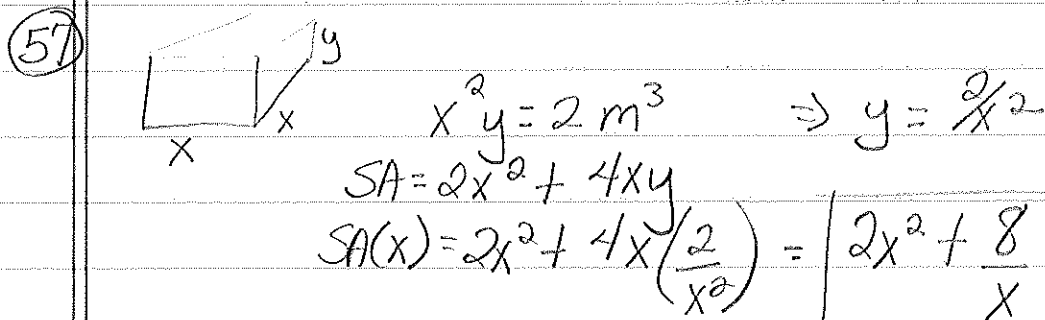 57
y
x
x
x²y = 2 m³ ⇒ y = 2/x²
SA = 2x² + 4xy
SA(x) = 2x² + 4x(2/x²) = 2x² + 8/x